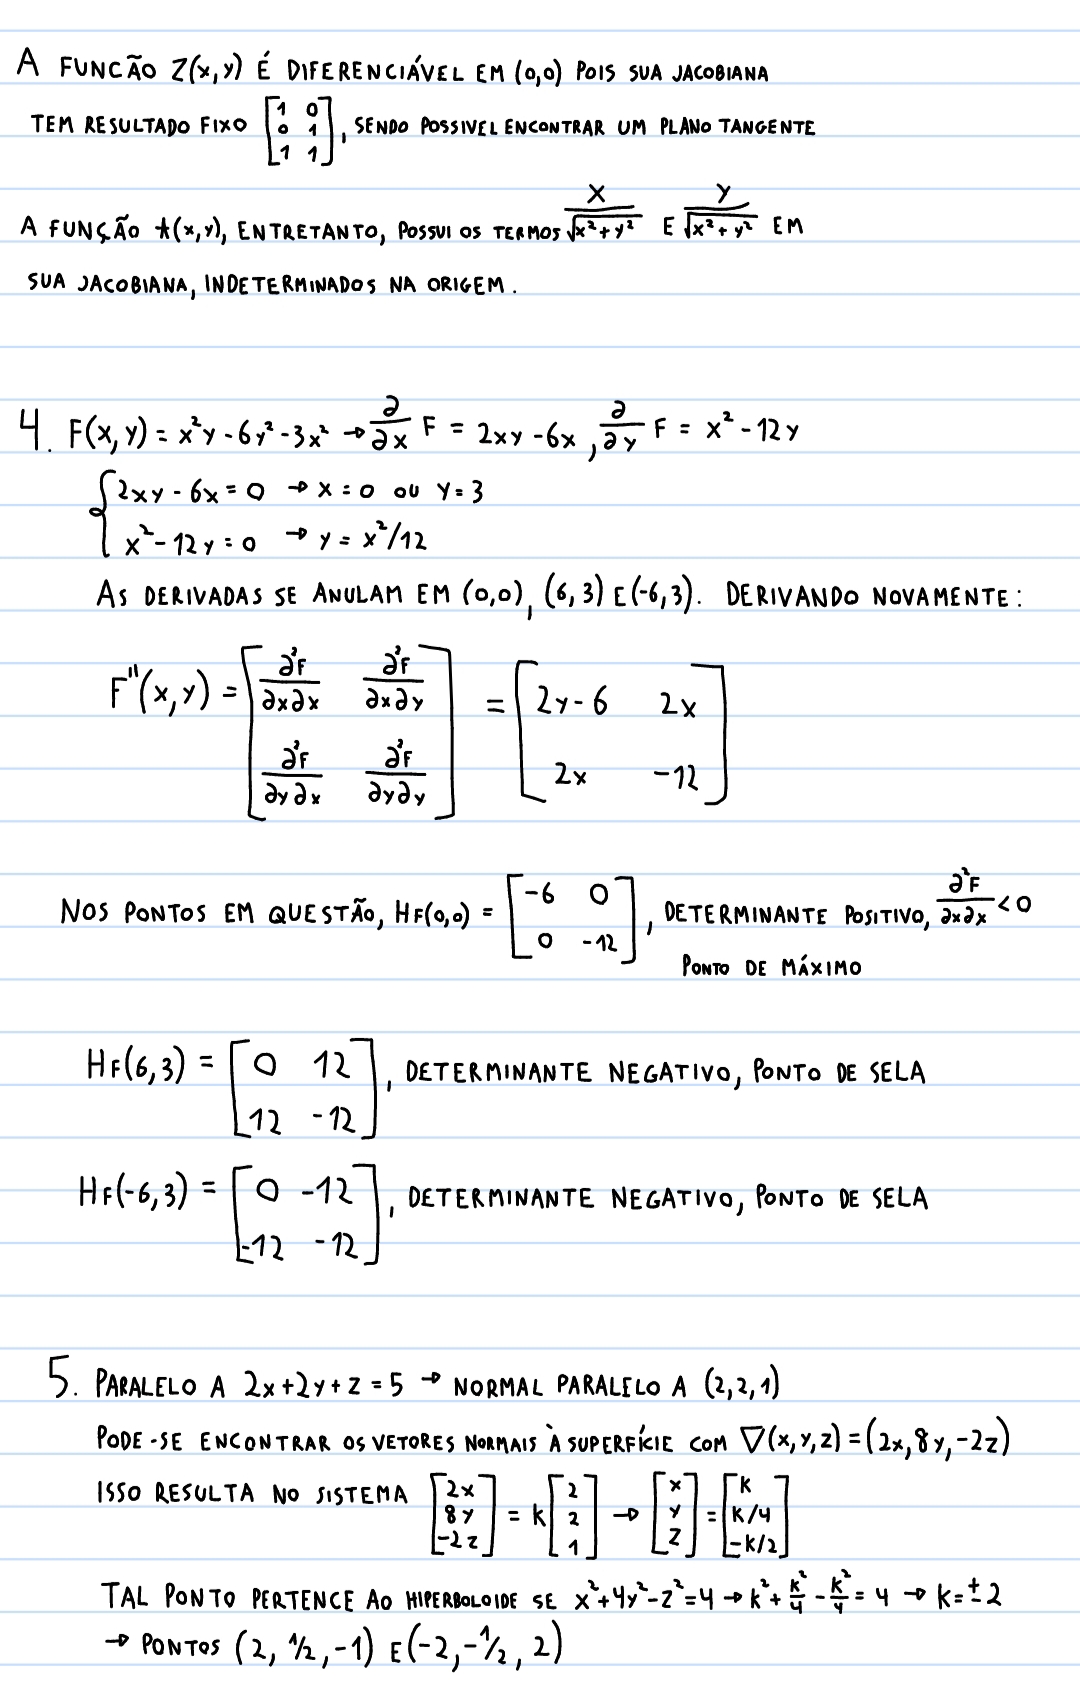 A FUNCÃO Z(x,y) É DIFERENCIÁVEL EM (0,0) POIS SUA JACOBIANA
TEM RESULTADO FIXO [1 0; 0 1; 1 1], SENDO POSSIVEL ENCONTRAR UM PLANO TANGENTE
A FUNÇÃO t(x,y), ENTRETANTO, POSSUI OS TERMOS x/√(x²+y²) E y/√(x²+y²) EM
SUA JACOBIANA, INDETERMINADOS NA ORIGEM.
4. F(x,y) = x²y - 6y² - 3x² → ∂/∂x F = 2xy - 6x, ∂/∂y F = x² - 12y
{2xy - 6x = 0 → x = 0 OU y = 3
x² - 12y = 0 → y = x²/12
AS DERIVADAS SE ANULAM EM (0,0), (6,3) E (-6,3). DERIVANDO NOVAMENTE:
F''(x,y) = [∂²F/∂x∂x ∂²F/∂x∂y; ∂²F/∂y∂x ∂²F/∂y∂y] = [2y-6 2x; 2x -12]
NOS PONTOS EM QUESTÃO, HF(0,0) = [-6 0; 0 -12], DETERMINANTE POSITIVO, ∂²F/∂x∂x < 0
PONTO DE MÁXIMO
HF(6,3) = [0 12; 12 -12], DETERMINANTE NEGATIVO, PONTO DE SELA
HF(-6,3) = [0 -12; -12 -12], DETERMINANTE NEGATIVO, PONTO DE SELA
5. PARALELO A 2x+2y+z = 5 → NORMAL PARALELO A (2,2,1)
PODE-SE ENCONTRAR OS VETORES NORMAIS À SUPERFÍCIE COM ∇(x,y,z) = (2x,8y,-2z)
ISSO RESULTA NO SISTEMA [2x; 8y; -2z] = k[2; 2; 1] → [x; y; z] = [k; k/4; -k/2]
TAL PONTO PERTENCE AO HIPERBOLOIDE SE x²+4y²-z²=4 → k²+k²/4-k²/4 = 4 → k=±2
→ PONTOS (2, 1/2, -1) E (-2, -1/2, 2)